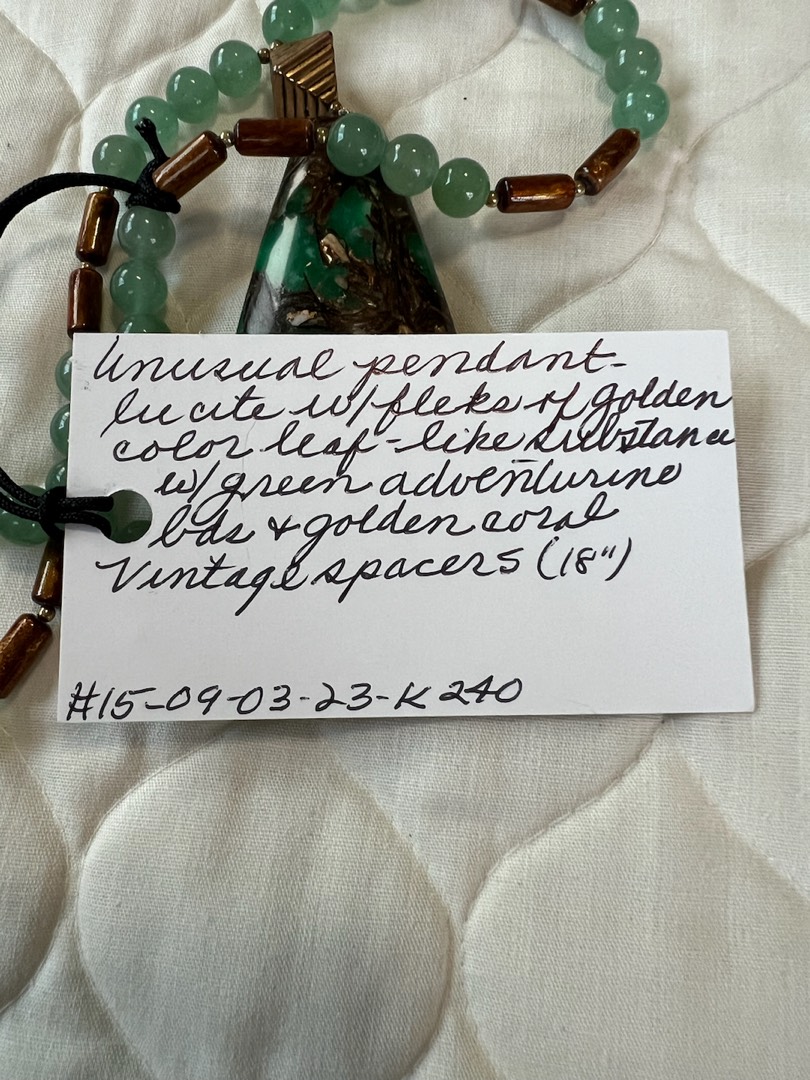 Unusual pendant-
lucite w/fleks of golden
color leaf-like substance
w/green adventurine
bds & golden coral
Vintage spacers (18")
#15-09-03-23-K240